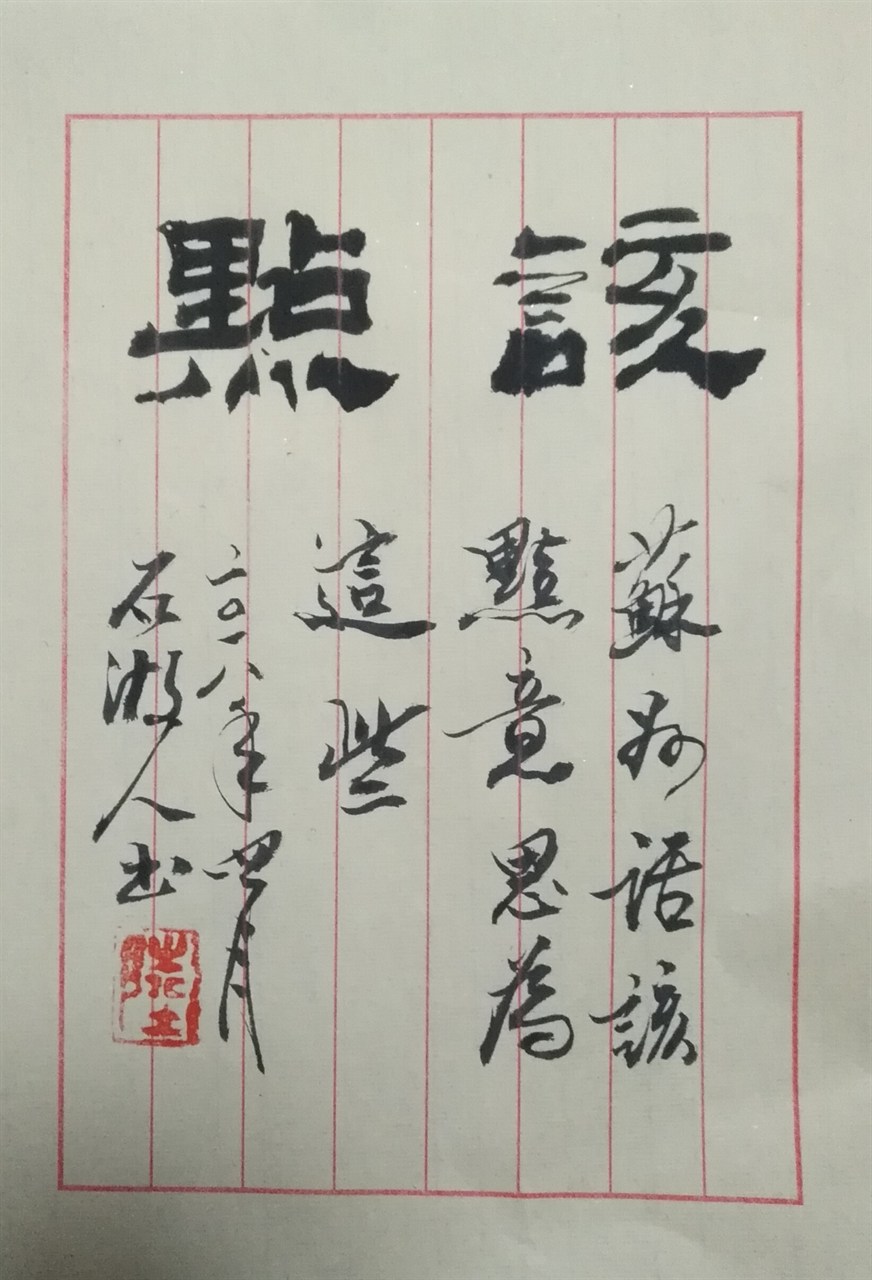 該點
蘇州話該
點意思為
這些
二〇一八年四月
石湖人书